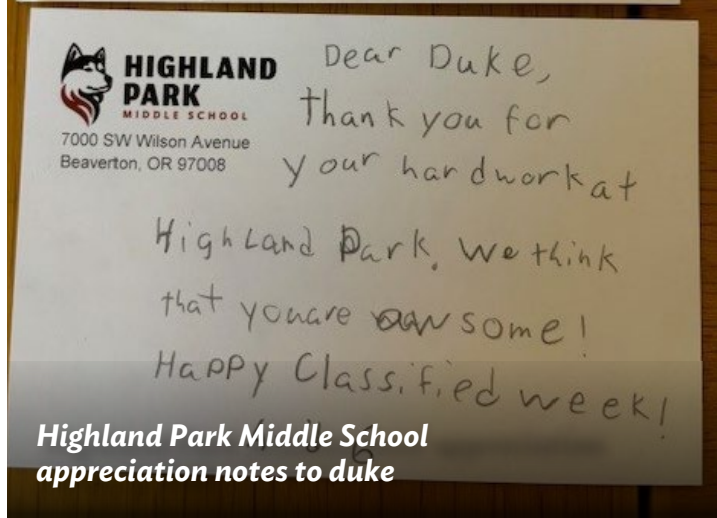 HIGHLAND
PARK
MIDDLE SCHOOL
7000 SW Wilson Avenue
Beaverton, OR 97008
Dear Duke,
thank you for
your hardwork at
HighLand Park. We think
that youare awsome!
Happy Classified week!
Highland Park Middle School
appreciation notes to duke